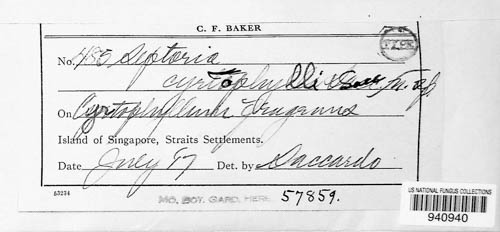 C. F. BAKER
No. 485 Septoria
cyrtophylli Sacc.
On Cyrtophyllum fragrans
Island of Singapore, Straits Settlements.
Date July 17 Det. by Saccardo
53234
MO. BOT. GARD. HERB. 57859.
US NATIONAL FUNGUS COLLECTIONS
940940